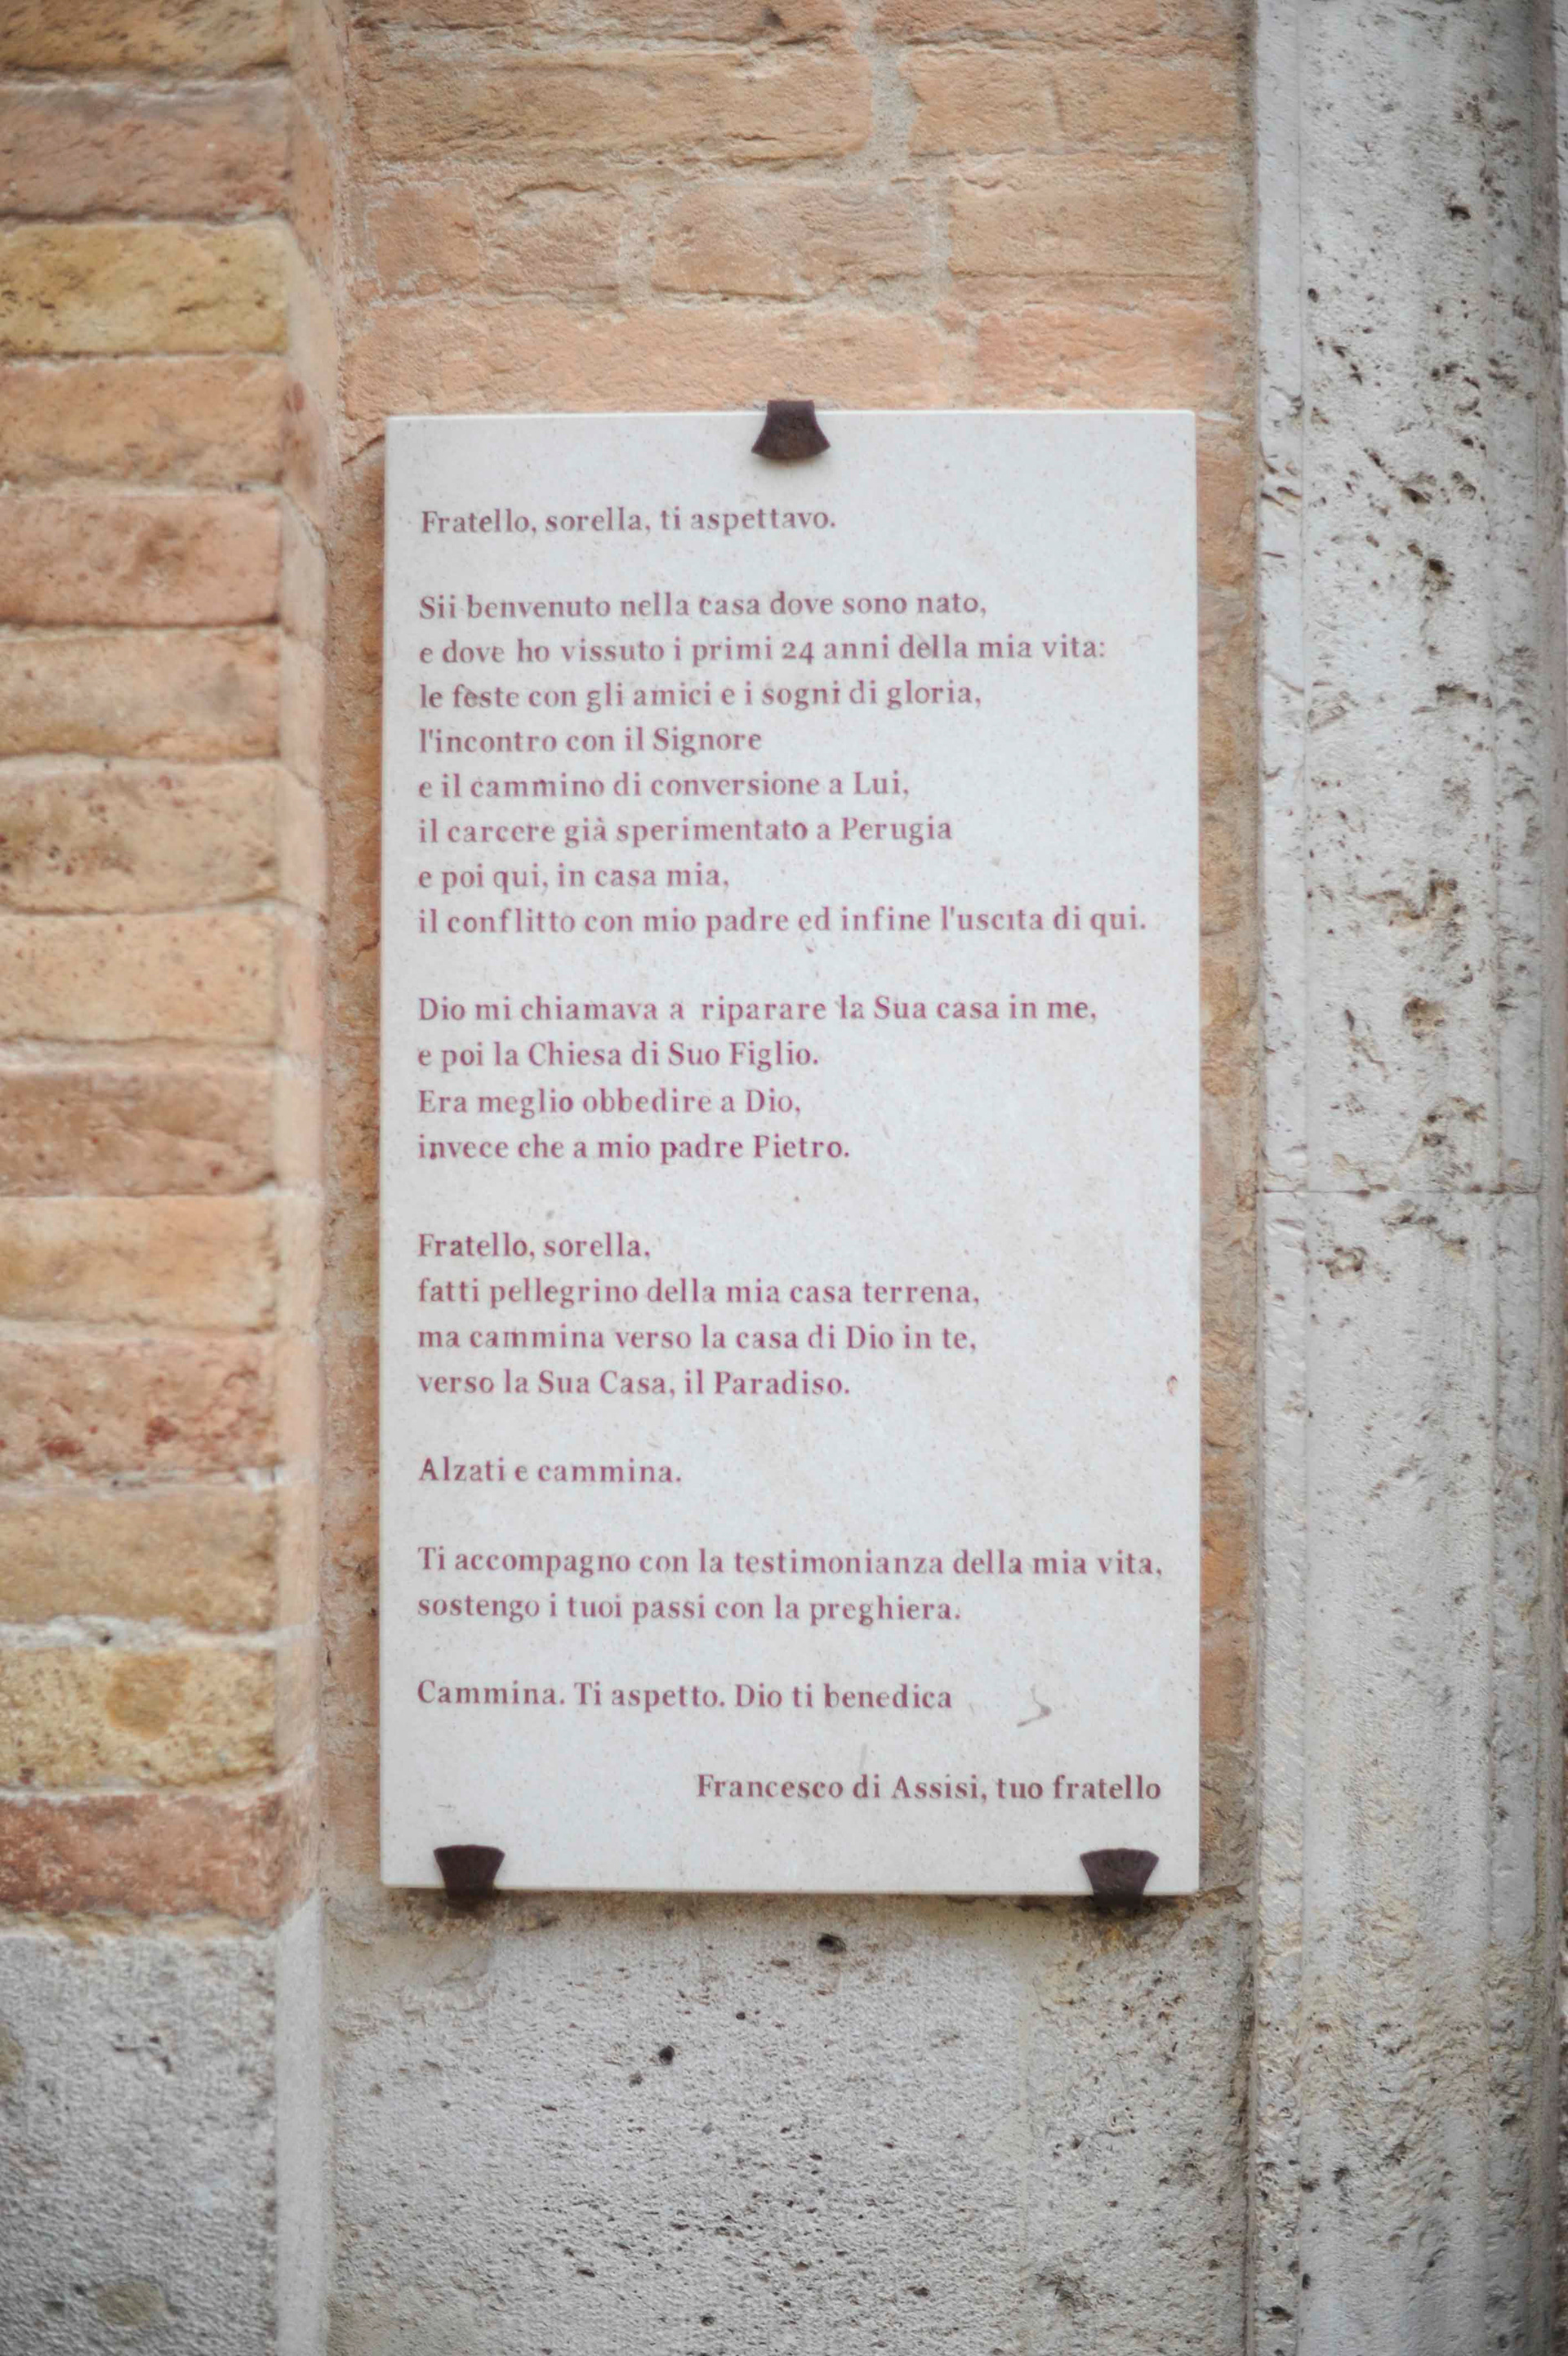 Fratello, sorella, ti aspettavo.
Sii benvenuto nella casa dove sono nato,
e dove ho vissuto i primi 24 anni della mia vita:
le feste con gli amici e i sogni di gloria,
l'incontro con il Signore
e il cammino di conversione a Lui,
il carcere già sperimentato a Perugia
e poi qui, in casa mia,
il conflitto con mio padre ed infine l'uscita di qui.
Dio mi chiamava a riparare la Sua casa in me,
e poi la Chiesa di Suo Figlio.
Era meglio obbedire a Dio,
invece che a mio padre Pietro.
Fratello, sorella,
fatti pellegrino della mia casa terrena,
ma cammina verso la casa di Dio in te,
verso la Sua Casa, il Paradiso.
Alzati e cammina.
Ti accompagno con la testimonianza della mia vita,
sostengo i tuoi passi con la preghiera.
Cammina. Ti aspetto. Dio ti benedica
Francesco di Assisi, tuo fratello